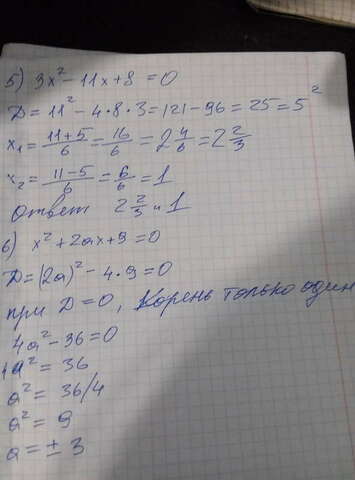 5) 3x² - 11x + 8 = 0
D = 11² - 4·8·3 = 121 - 96 = 25 = 5²
x₁ = (11+5)/6 = 16/6 = 2 4/6 = 2 2/3
x₂ = (11-5)/6 = 6/6 = 1
Ответ 2 2/3 и 1
6) x² + 2ax + 9 = 0
D = (2a)² - 4·9 = 0
при D = 0, Корень только один
4a² - 36 = 0
4a² = 36
a² = 36/4
a² = 9
a = ± 3